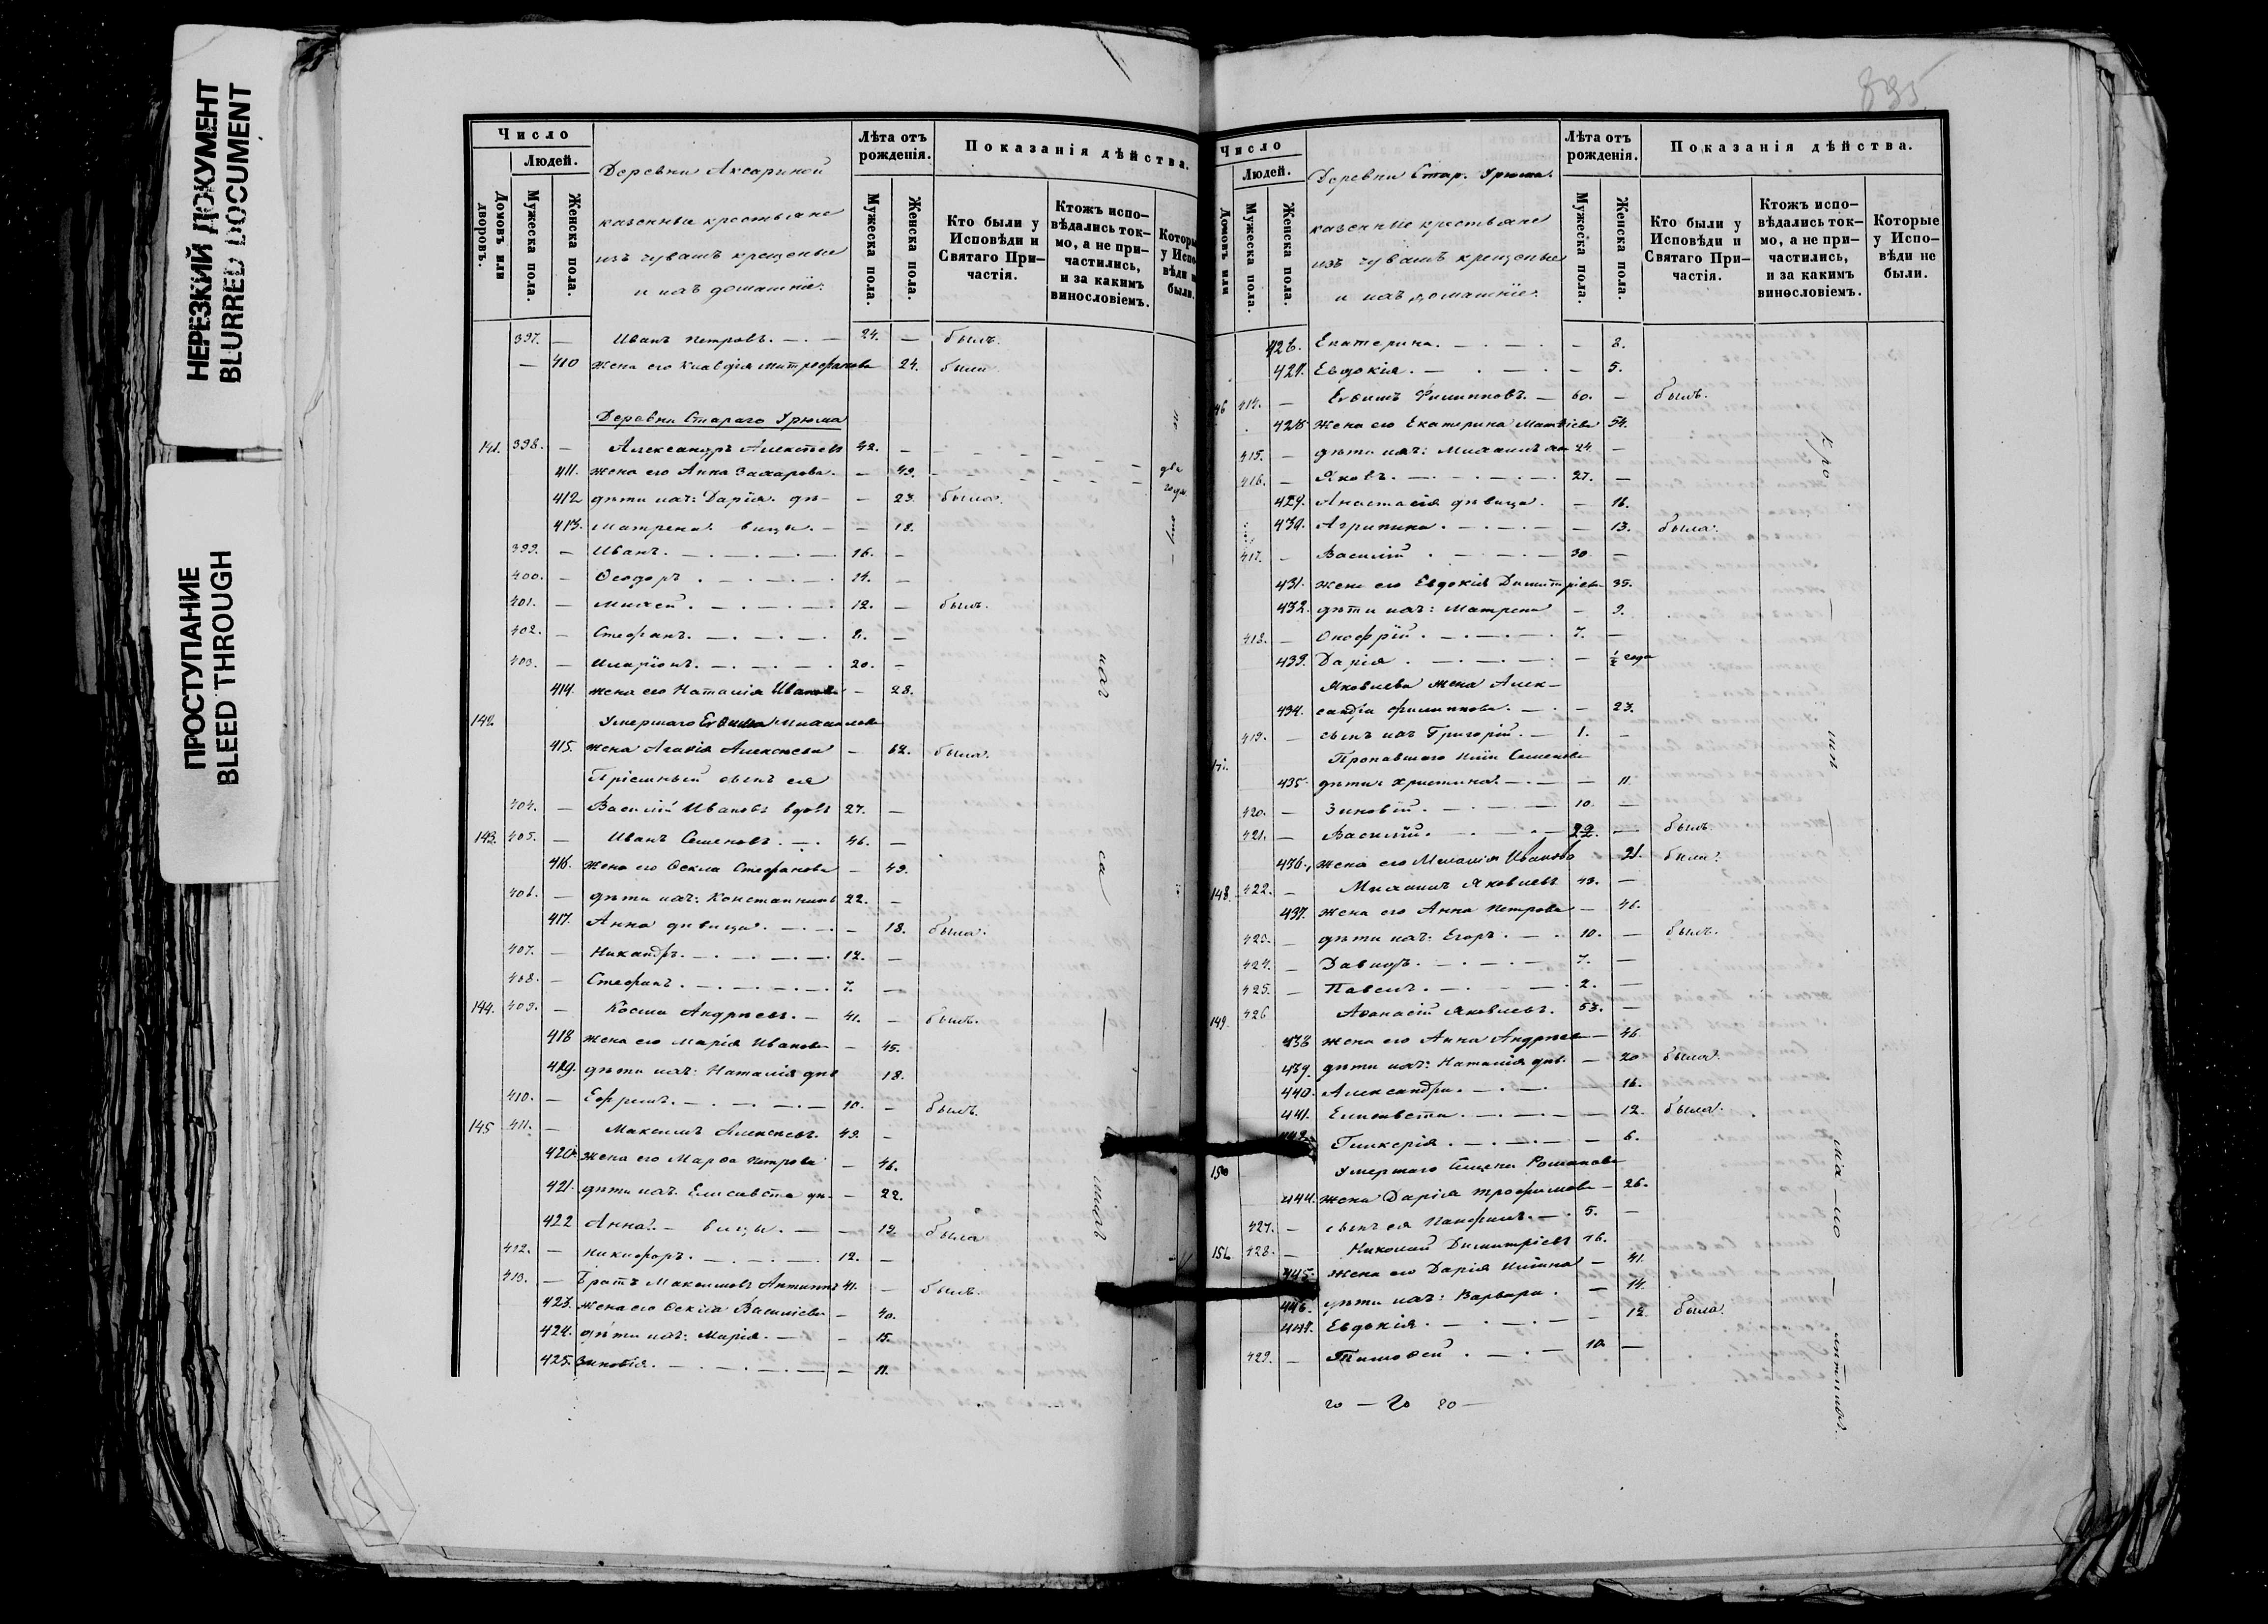 НЕРЕЗКИЙ ДОКУМЕНТ
BLURRED DOCUMENT
ПРОСТУПАНИЕ
BLEED THROUGH
Число
Людей.
Домовъ или дворовъ.
Мужеска пола.
Женска пола.
Деревни Аксариной
казенные крестьяне
изъ чувашъ крещеные
и ихъ домашніе.
Лѣта отъ рожденія.
Мужеска пола.
Женска пола.
Показанія дѣйства.
Кто были у Исповѣди и Святаго Причастія.
Ктожъ исповѣдались токмо, а не причастились, и за какимъ винословіемъ.
Которые у Исповѣди не были.
397. — Иванъ Петровъ. — 24. — былъ.
— 410 жена его Клавдія Митрофанова 24. была
Деревни Стараго Урюма
141. 398. — Александръ Алексѣевъ 42. —
411. жена его Анна Захарова. — 49. два года
412 дѣти ихъ: Дарія. дѣ— — 23. была.
413. Матрена. вицы. — — 18.
399. — Иванъ. 16. —
400. — Ѳеодоръ. 14. —
401. — Михей. 12. — былъ.
402. — Стефанъ. 8. —
403. — Иларіонъ. 20. —
414. жена его Наталія Иванова — 28.
142. Умершаго Евѳима Михайлова
415. жена Агафія Алексѣева — 62. была.
Пріемный сынъ ея
404. — Василій Ивановъ вдовъ 27. —
143. 405. — Иванъ Семеновъ. 46. —
416. жена его Ѳекла Стефанова — 49.
406. — дѣти ихъ: Константинъ 22. —
417. Анна дѣвица. — 18. была.
407. — Никандръ. 12. —
408. — Стефанъ. 7. —
144. 409. — Косма Андреевъ. — 41. — былъ.
418 жена его Марія Иванова — 45.
419. дѣти ихъ: Наталія дѣв 18.
410. — Ефремъ. 10. — былъ.
145 411. — Максимъ Алексѣевъ. 49. —
420. жена его Марѳа Петрова — 46.
421. дѣти ихъ. Елисавета дѣ- — 22.
422 Анна. — вицы. — — 12 была
412. — Никифоръ. 12. —
413. — Братъ Максимовъ Антипъ 41. — былъ.
423. жена его Ѳекла Васильева — 40.
424. дѣти ихъ: Марія. — 15.
425. Зиновія. — 11.
835
Число
Людей.
Домовъ или
Мужеска пола.
Женска пола.
Деревни Стар. Урюма.
казенные крестьяне
изъ чувашъ крещеные
и ихъ домашніе.
Лѣта отъ рожденія.
Мужеска пола.
Женска пола.
Показанія дѣйства.
Кто были у Исповѣди и Святаго Причастія.
Ктожъ исповѣдались токмо, а не причастились, и за какимъ винословіемъ.
Которые у Исповѣди не были.
426. Екатерина. — 8.
427. Евдокія. — 5.
46 414. — Евѳимъ Филипповъ. — 60. — былъ.
428 Жена его Екатерина Матвѣева 54.
415. — дѣти ихъ: Михаилъ 24. —
416. — Яковъ. 27. —
429. Анастасія дѣвица. — 16.
430. Агрипина. — 13. была.
417. — Василій. 30. —
431. жена его Евдокія Димитріева 35.
432. дѣти ихъ: Матрена — 9.
418. — Онофрій. 7. —
433. Дарія. — ½ года
Яковлева жена Алек—
434. сандра Филиппова. — 23.
419. — сынъ ихъ Григорій. — 1. —
Пропавшаго Семенова
435. дѣти: Христина. — 11.
420. — Зиновій. 10. —
421. — Василій. 22. — былъ.
436. жена его Иванова 21. была.
148. 422. — Михаилъ Яковлевъ 43. —
437. жена его Анна Петрова — 46.
423. — дѣти ихъ: Егоръ. 10. — былъ.
424. — Давидъ. 7. —
425. — Павелъ. 2. —
149. 426 Аѳанасій Яковлевъ. 53. —
438 жена его Анна Андреева — 46.
439. дѣти ихъ: Наталія дѣв. — 20 была.
440. Александра. 16.
441. Елисавета. — 12. была.
Гликерія. — 6.
150 Умершаго Романова
444. жена Дарія Трофимова — 26.
427. — сынъ ея Памфилъ. — 5. —
151. 428. — Николай Димитріевъ 46.
445. жена его Дарія — 41.
446. дѣти ихъ: Варвара. — 14.
447. Евдокія. — 12. была.
429. — Тимоѳей. 10. —
20 — 20 20 —